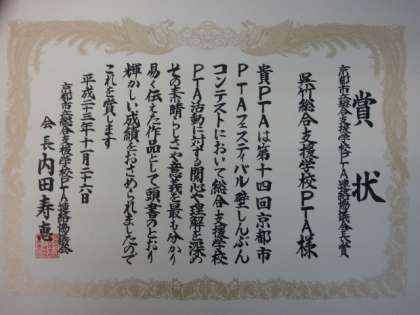 賞状
京都市立総合支援学校PTA連絡協議会会長賞
呉竹総合支援学校PTA様
貴PTAは第十四回京都市
PTAフェスティバル壁しんぶん
コンテストにおいて総合支援学校
PTA活動に対する関心や理解を深め
その素晴らしさや意義を最も分かり
易く伝えた作品として頭書のとおり
輝かしい成績をおさめられましたので
これを賞します
平成二十三年十一月二十六日
京都市立総合支援学校PTA連絡協議会
会長 内田寿恵